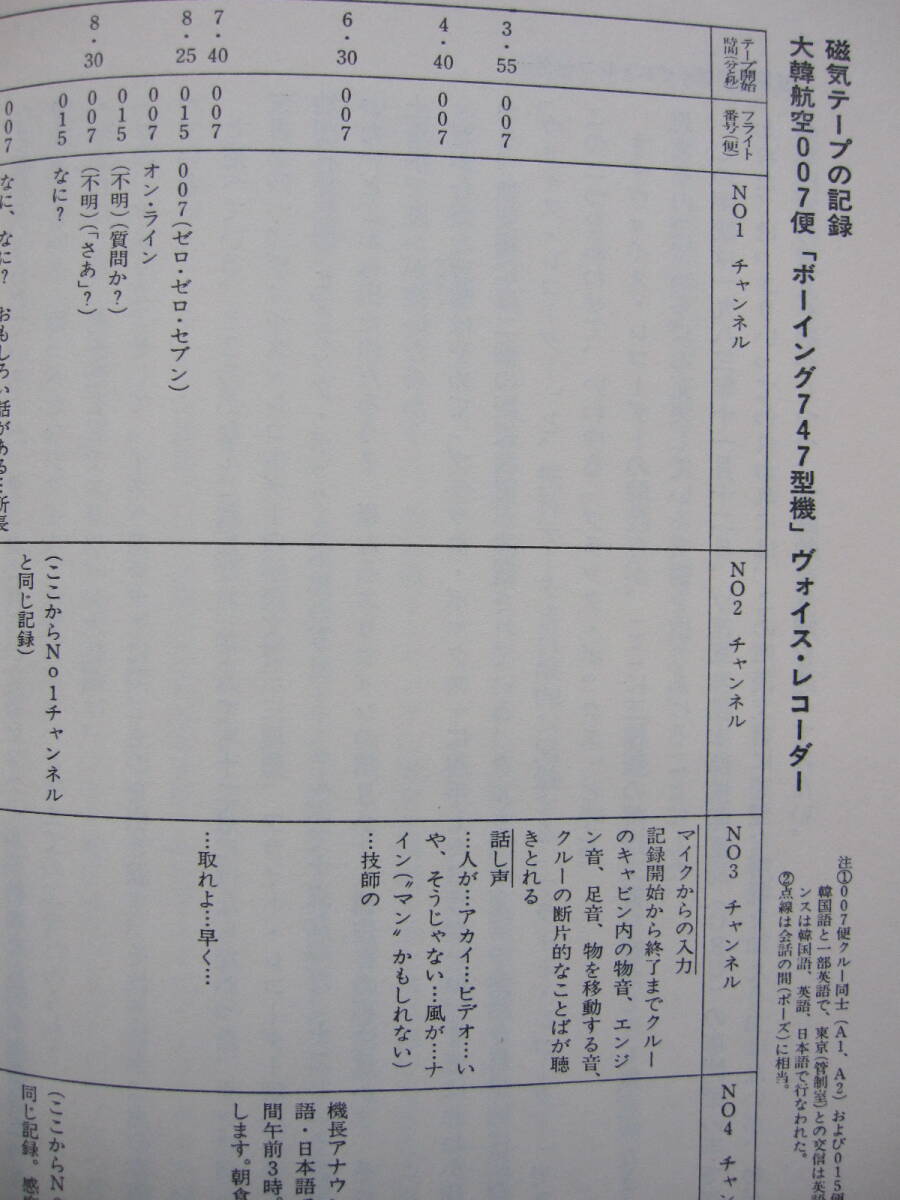 磁気テープの記録
大韓航空007便「ボーイング747型機」ヴォイス・レコーダー
注①007便クルー同士(A1、A2)および015便
韓国語と一部英語で、東京(管制室)との交信は英語
ンスは韓国語、英語、日本語で行なわれた。
②点線は会話の間(ポーズ)に相当。
テープ開始
時間(分と秒)
フライト
番号(便)
NO1 チャンネル
NO2 チャンネル
NO3 チャンネル
NO4 チャン
マイクからの入力
記録開始から終了までクルー
のキャビン内の物音、エンジ
ン音、足音、物を移動する音、
クルーの断片的なことばが聴
きとれる
3・55
007
話し声
4・40
007
…人が…アカイ…ビデオ…い
や、そうじゃない…風が…ナ
イン(〝マン〟かもしれない)
6・30
007
…技師の
機長アナウン
語・日本語で
間午前3時。
します。朝食
7・40
007
…取れよ…早く…
8・25
015
007(ゼロ・ゼロ・セブン)
007
オン・ライン
015
(不明)(質問か?)
8・30
007
(不明)(「さあ」?)
015
なに?
(ここからNo1チャンネル
と同じ記録)
(ここからN
同じ記録。
007
なに、なに? おもしろい話がある…所長